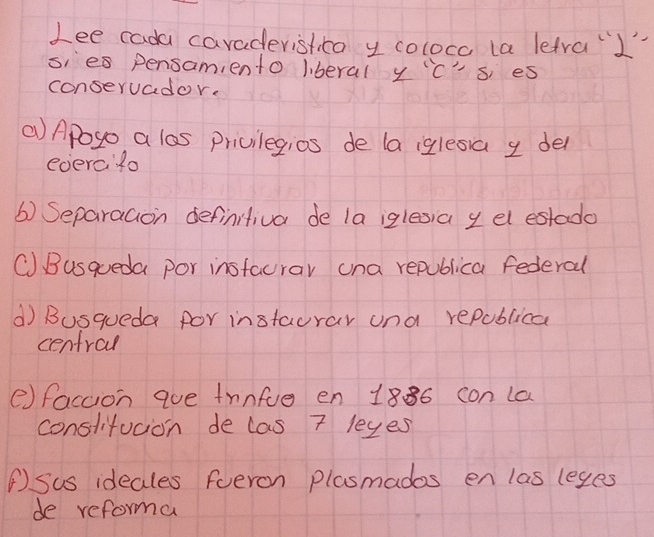 Lee cada caracteristica y coloca la letra "L"
si es pensamiento liberal y "C" si es
conservador.
a) Apoyo a los privilegios de la iglesia y del
ejercito
b) Separación definitiva de la iglesia y el estado
c) Busqueda por instaurar una republica federal
d) Busqueda por instaurar una republica
central
e) facción que trinfuo en 1836 con la
constitución de las 7 leyes
f) Sus ideales fueron plasmados en las leyes
de reforma